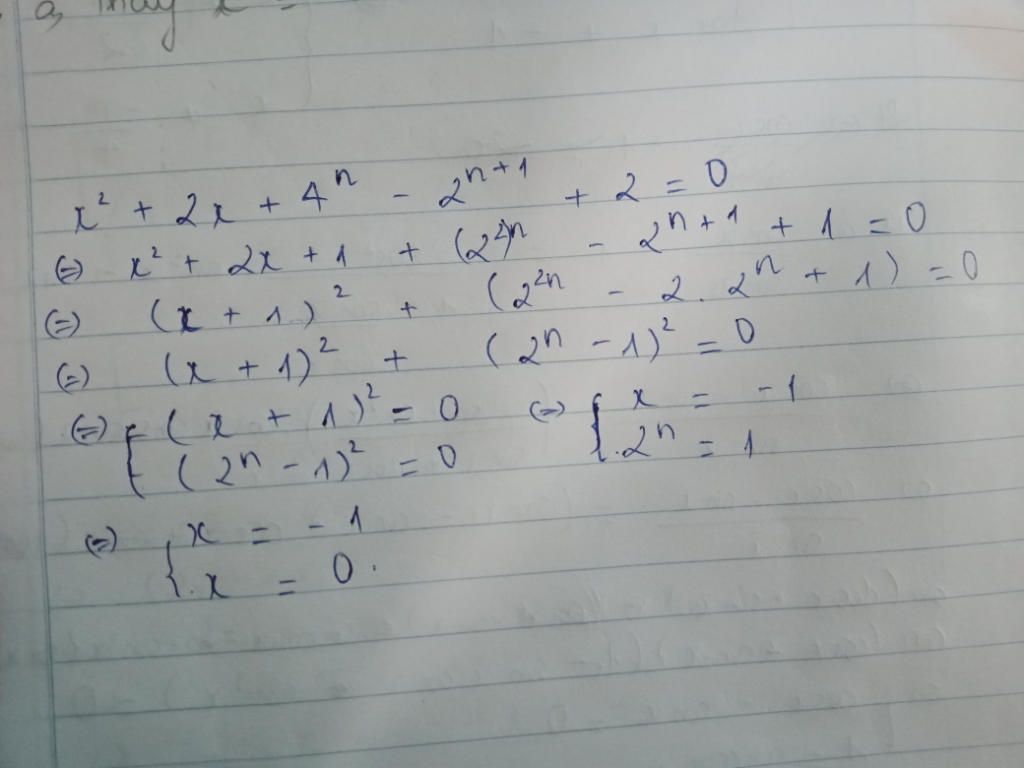 a, Thay x =
x² + 2x + 4ⁿ - 2ⁿ⁺¹ + 2 = 0
(=) x² + 2x + 1 + (2²)ⁿ - 2ⁿ⁺¹ + 1 = 0
(=) (x + 1)² + (2²ⁿ - 2. 2ⁿ + 1) = 0
(=) (x + 1)² + (2ⁿ - 1)² = 0
(=) { (x + 1)² = 0 (=) { x = -1
(2ⁿ - 1)² = 0 2ⁿ = 1
(=) { x = -1
x = 0.